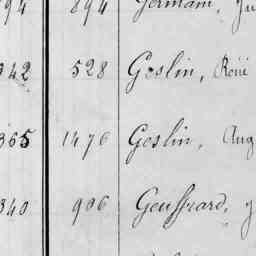 94 894 Germain, Ju
342 528 Goslin, René
365 1476 Geslin, Aug
340 906 Geuffrard,